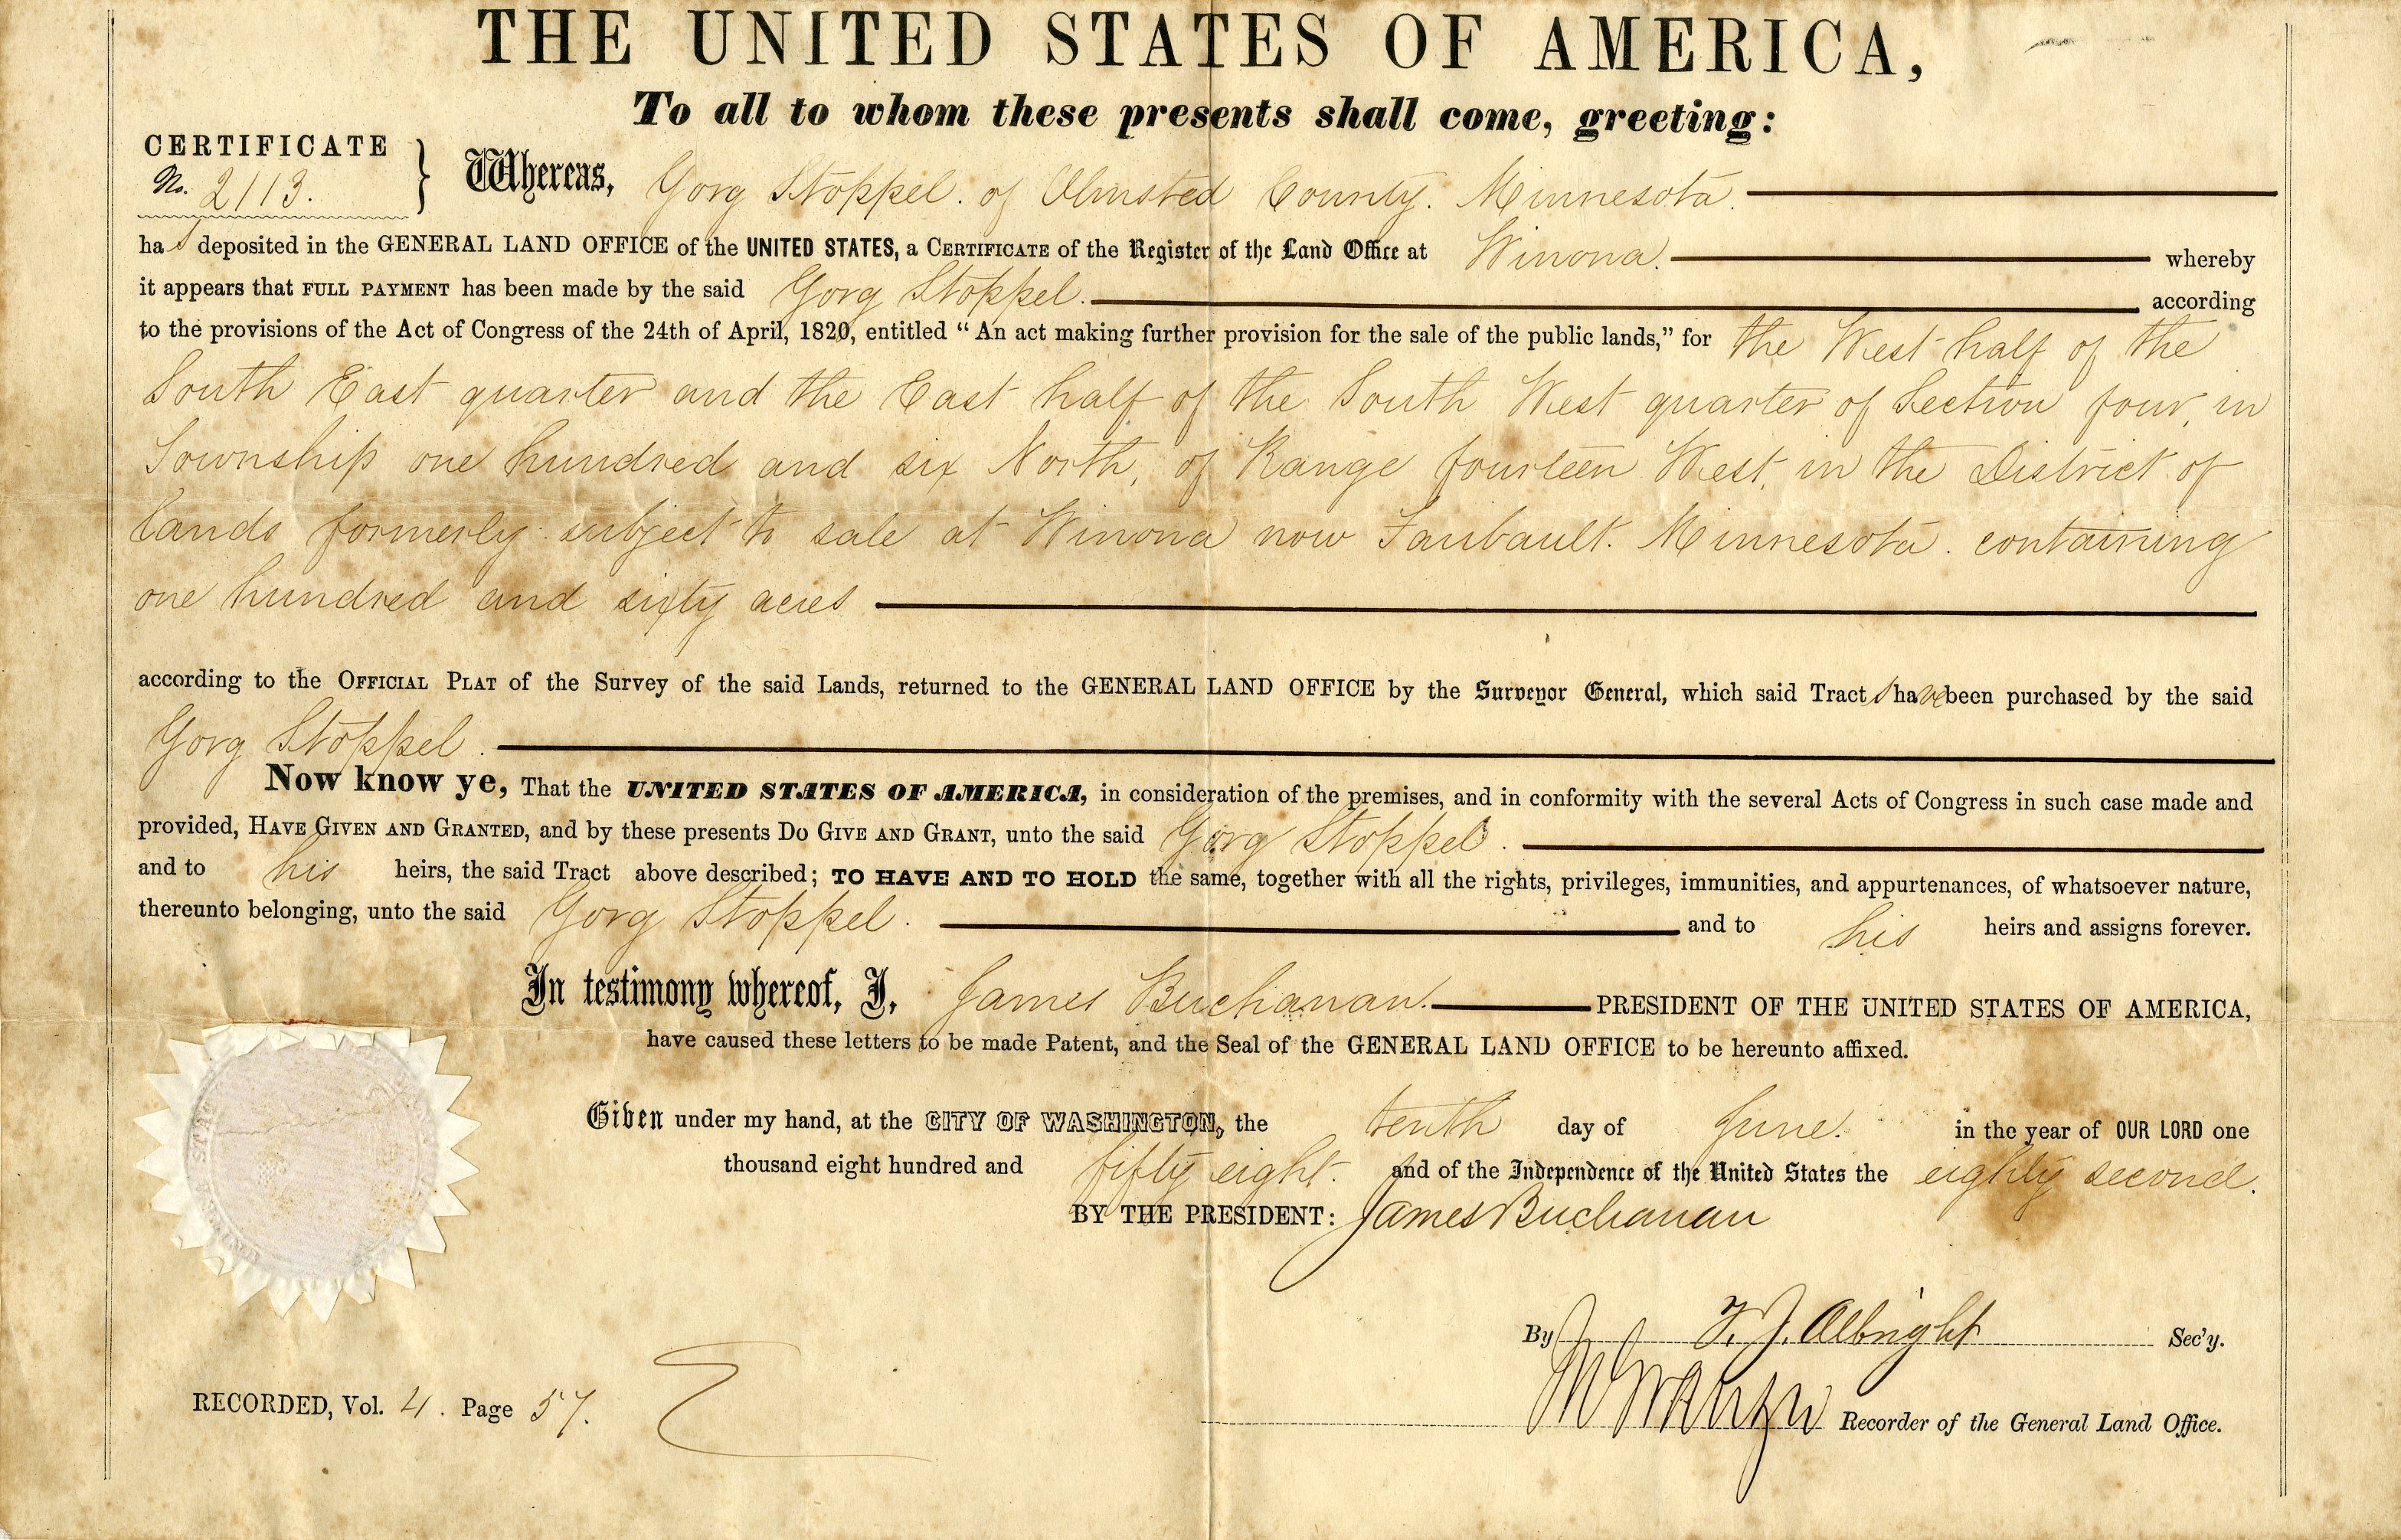 THE UNITED STATES OF AMERICA,
To all to whom these presents shall come, greeting:
CERTIFICATE
No. 2113.
Whereas, Gorg Stoppel. of Olmsted County. Minnesota.
has deposited in the GENERAL LAND OFFICE of the UNITED STATES, a CERTIFICATE of the Register of the Land Office at Winona. whereby
it appears that FULL PAYMENT has been made by the said Gorg Stoppel. according
to the provisions of the Act of Congress of the 24th of April, 1820, entitled “An act making further provision for the sale of the public lands,” for the West half of the
South East quarter and the East half of the South West quarter of Section four, in
Township one hundred and six North, of Range fourteen West, in the District of
lands formerly subject to sale at Winona now Faribault. Minnesota. containing
one hundred and sixty acres
according to the OFFICIAL PLAT of the Survey of the said Lands, returned to the GENERAL LAND OFFICE by the Surveyor General, which said Tracts have been purchased by the said
Gorg Stoppel.
Now know ye, That the UNITED STATES OF AMERICA, in consideration of the premises, and in conformity with the several Acts of Congress in such case made and
provided, HAVE GIVEN AND GRANTED, and by these presents DO GIVE AND GRANT, unto the said Gorg Stoppel.
and to his heirs, the said Tract above described; TO HAVE AND TO HOLD the same, together with all the rights, privileges, immunities, and appurtenances, of whatsoever nature,
thereunto belonging, unto the said Gorg Stoppel. and to his heirs and assigns forever.
In testimony whereof, I, James Buchanan. PRESIDENT OF THE UNITED STATES OF AMERICA,
have caused these letters to be made Patent, and the Seal of the GENERAL LAND OFFICE to be hereunto affixed.
Given under my hand, at the CITY OF WASHINGTON, the tenth day of June. in the year of OUR LORD one
thousand eight hundred and fifty eight. and of the Independence of the United States the eighty second.
BY THE PRESIDENT: James Buchanan
By T. J. Albright Sec'y.
RECORDED, Vol. 4. Page 57.
Recorder of the General Land Office.